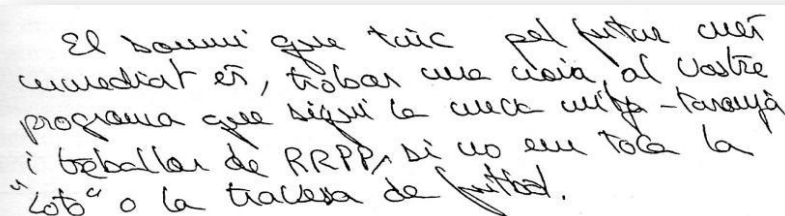 El somni que tinc pel futur més
immediat és, trobar una noia, al vostre
programa que sigui la meva mitja-taronja
i treballar de RRPP, si no em toca la
"loto" o la travessa de futbol.